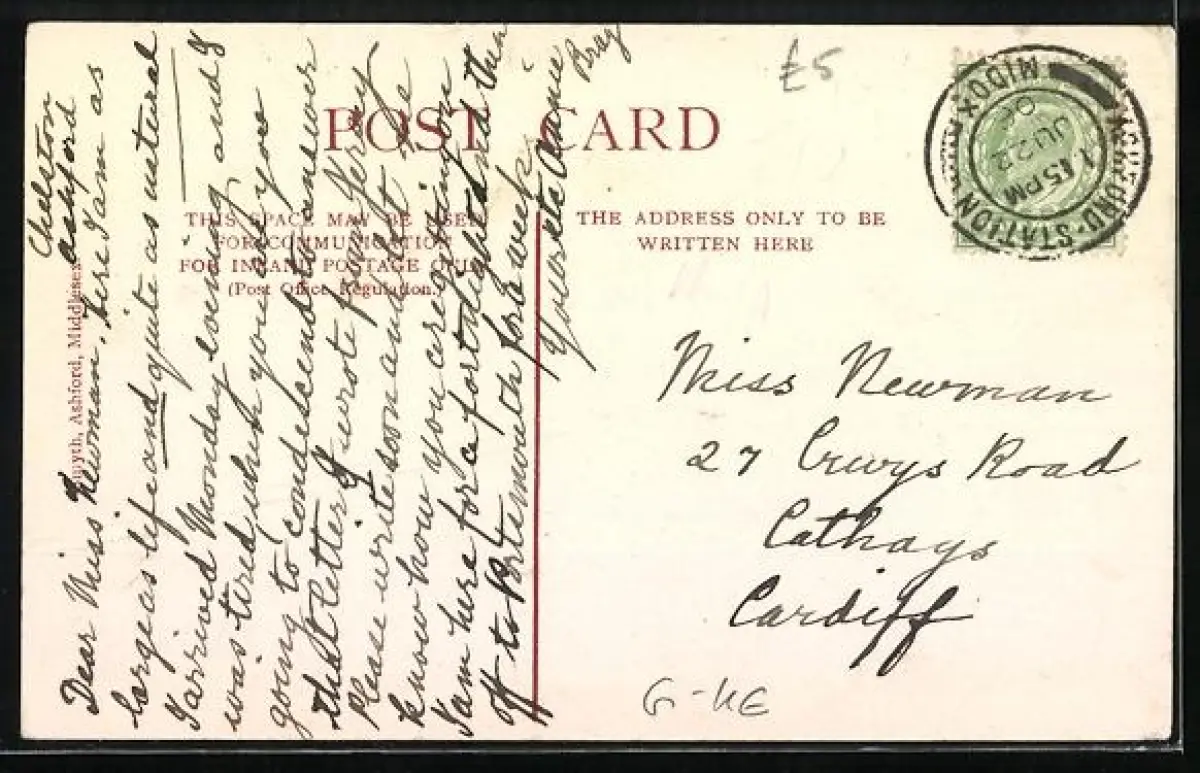 POST CARD
THIS SPACE MAY BE USED
FOR COMMUNICATION
FOR INLAND POSTAGE ONLY
(Post Office Regulation.)
THE ADDRESS ONLY TO BE
WRITTEN HERE
£5
ASHFORD-STATION
MIDDX
1.15PM
JU 22
Ashford, Middlesex
Ashford
Dear Miss Newman, here I am as
large as life and quite as natural
I arrived Monday evening and I
was tired, when you are you
going to condescend to answer
that letter I wrote
Please write soon and let me
know how you are getting on
I am here for a fortnight and then
off to Portsmouth for a week.
Yours etc Annie
Bray
Miss Newman
27 Crwys Road
Cathays
Cardiff
G-ME